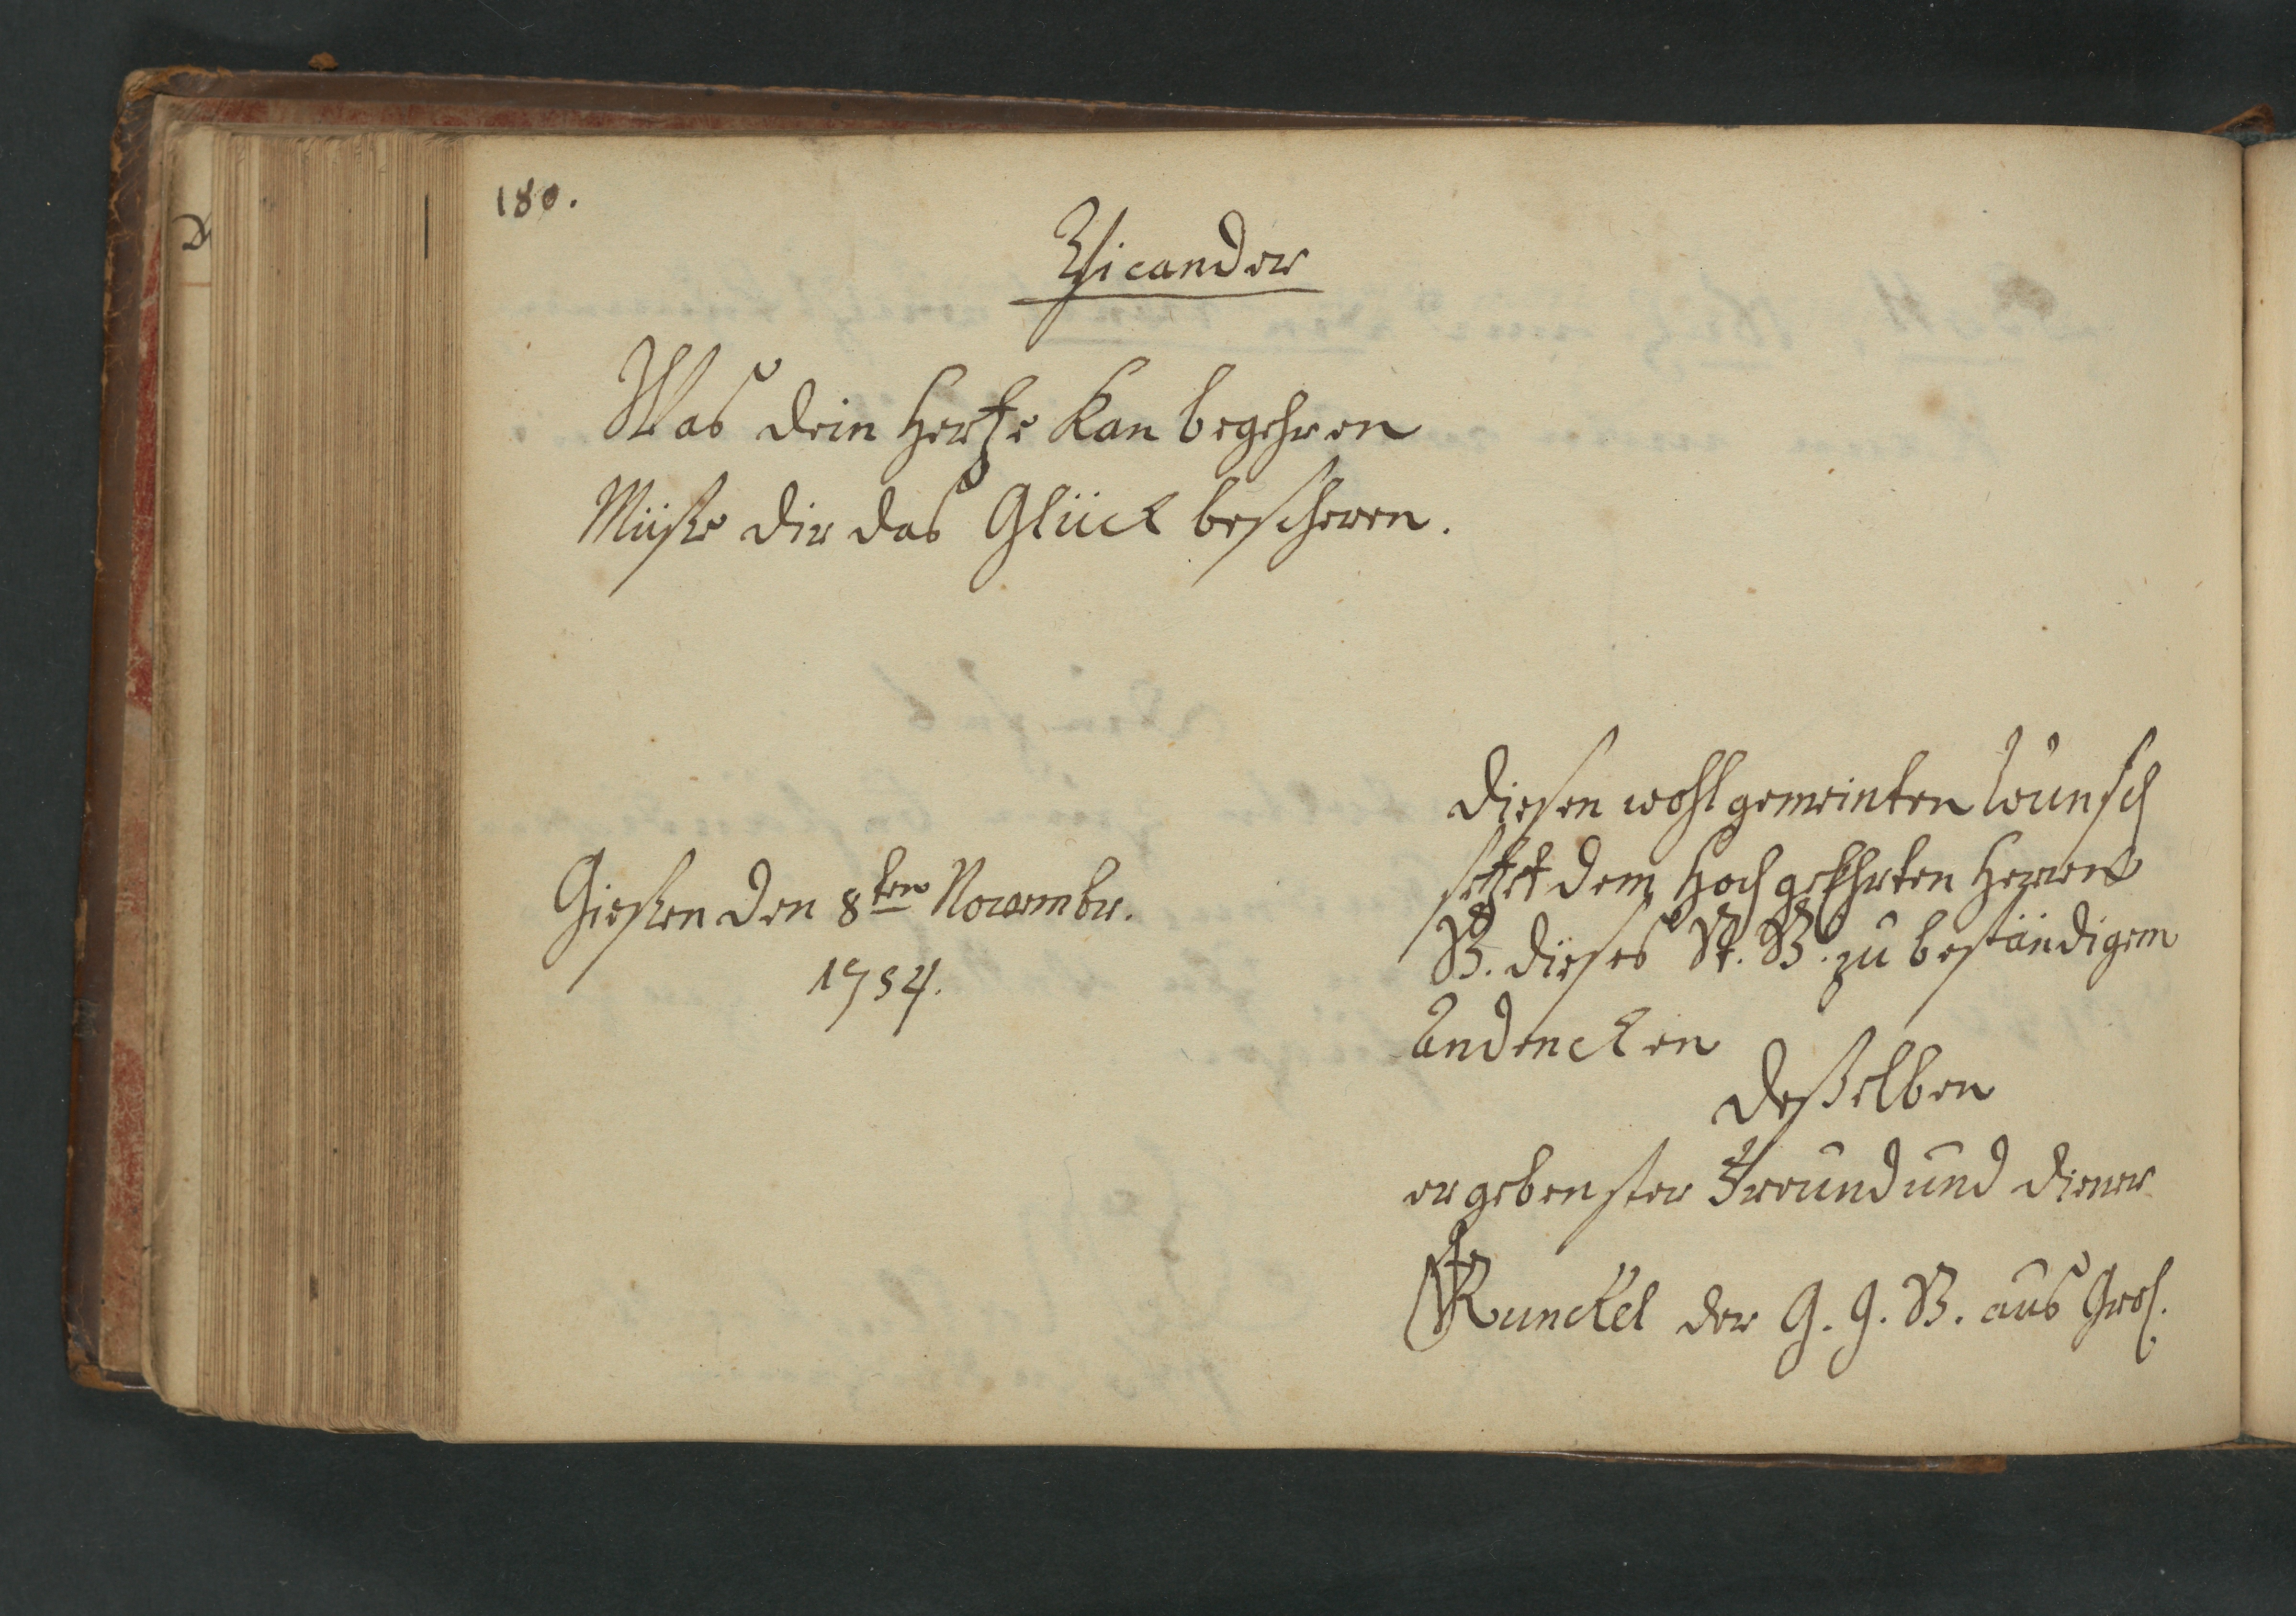 180.
Picander
Was dein Hertze kan begehren
Müße dir das Glück bescheren.
Gießen den 8ten Novembr.
1734.
Diesen wohlgemeinten Wunsch
setzet dem Hochgelehrten Herren
B. dieses St. B. zu beständigem
Andencken
deßelben
ergebenster Freund und Diener
Runckel der G. G. B. aus